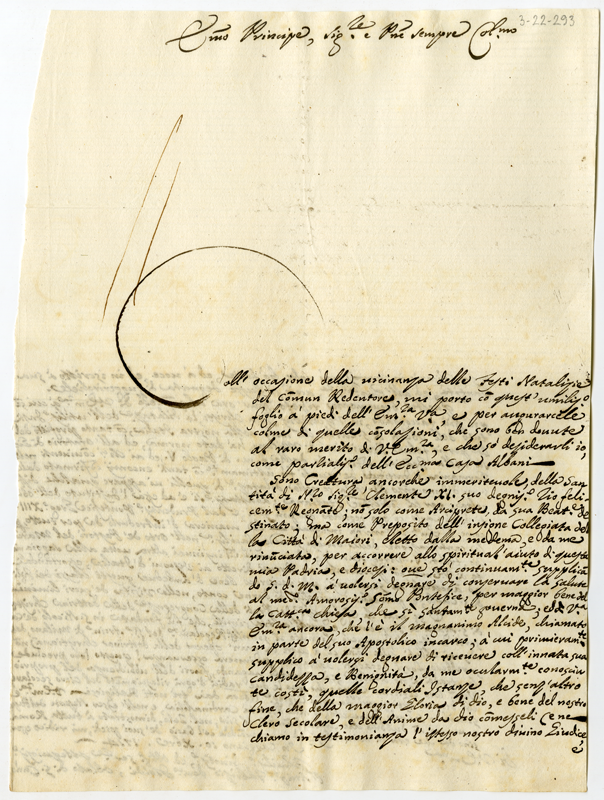 3-22-293
Em̃o Principe, Sig.re e Pñe sempre Col̃mo
Coll' occasione della vicinanza delle Feste Natalizie
del Comun Redentore, mi porto cõ quest' umiliss.o
foglio à piedi dell' Em.za V.ra e per augurarcelle
colme di quelle cõsolazioni, che sono ben dovute
al raro merito di V. Em.za, e che sò desiderarli io,
come parzialis.o dell' Ecc̃ma Casa Albani
Sono Creatura ancorche immeritevole, della San
tità di N.ro Sig.re Clemente XI. suo degnis.o Zio feli-
cem.te Regnãte; nõ solo come Arciprete, da sua Beat.e de
stinato; ma come Preposito dell' insigne Collegiata del
la Città di Maiori, eletto dalla medema, e da me
rinũciata, per accorrere allo spiritual' aiuto di questa
mia Padria, e diocesi: ove stò continuam.te supplicã
do S. D. M. à volersi degnare di conservare la salute
al med.o Amorosis.o Som̃o Pontefice, per maggior bene del
la Catt.ca chiesa che sì santam.te governa; ed à V.ra
Em.za ancora, che l'è il magnanimo Alcide, chiamato
in parte del suo Apostolico incarco; à cui primieram.te
supplico à volersi degnare di ricevere coll' innata sua
candidezza, e Benignità, da me ocularm.te conosciu
te costì, quelle cordiali Istanze, che senz' altro
fine, che della maggior Gloria di dio, e bene del nostro
Clero Secolare, e dell' Anime da dio cõmesseli (e ne
chiamo in testimonianza l'istesso nostro divino Giudice
è